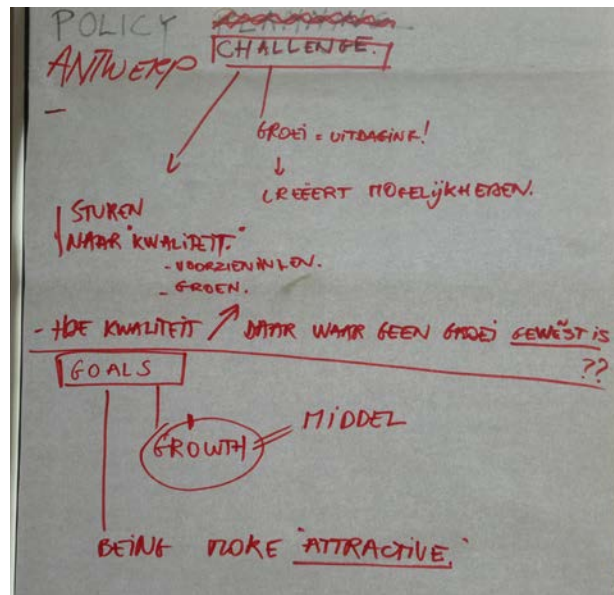 POLICY
CHALLENGE.
ANTWERP
GROEI = UITDAGING!
CREËERT MOGELIJKHEDEN.
STUREN
NAAR "KWALITEIT."
- VOORZIENINGEN.
- GROEN.
- HOE KWALITEIT ↗ DAAR WAAR GEEN GROEI GEWEST IS
??
GOALS
GROWTH
MIDDEL
BEING MORE "ATTRACTIVE."